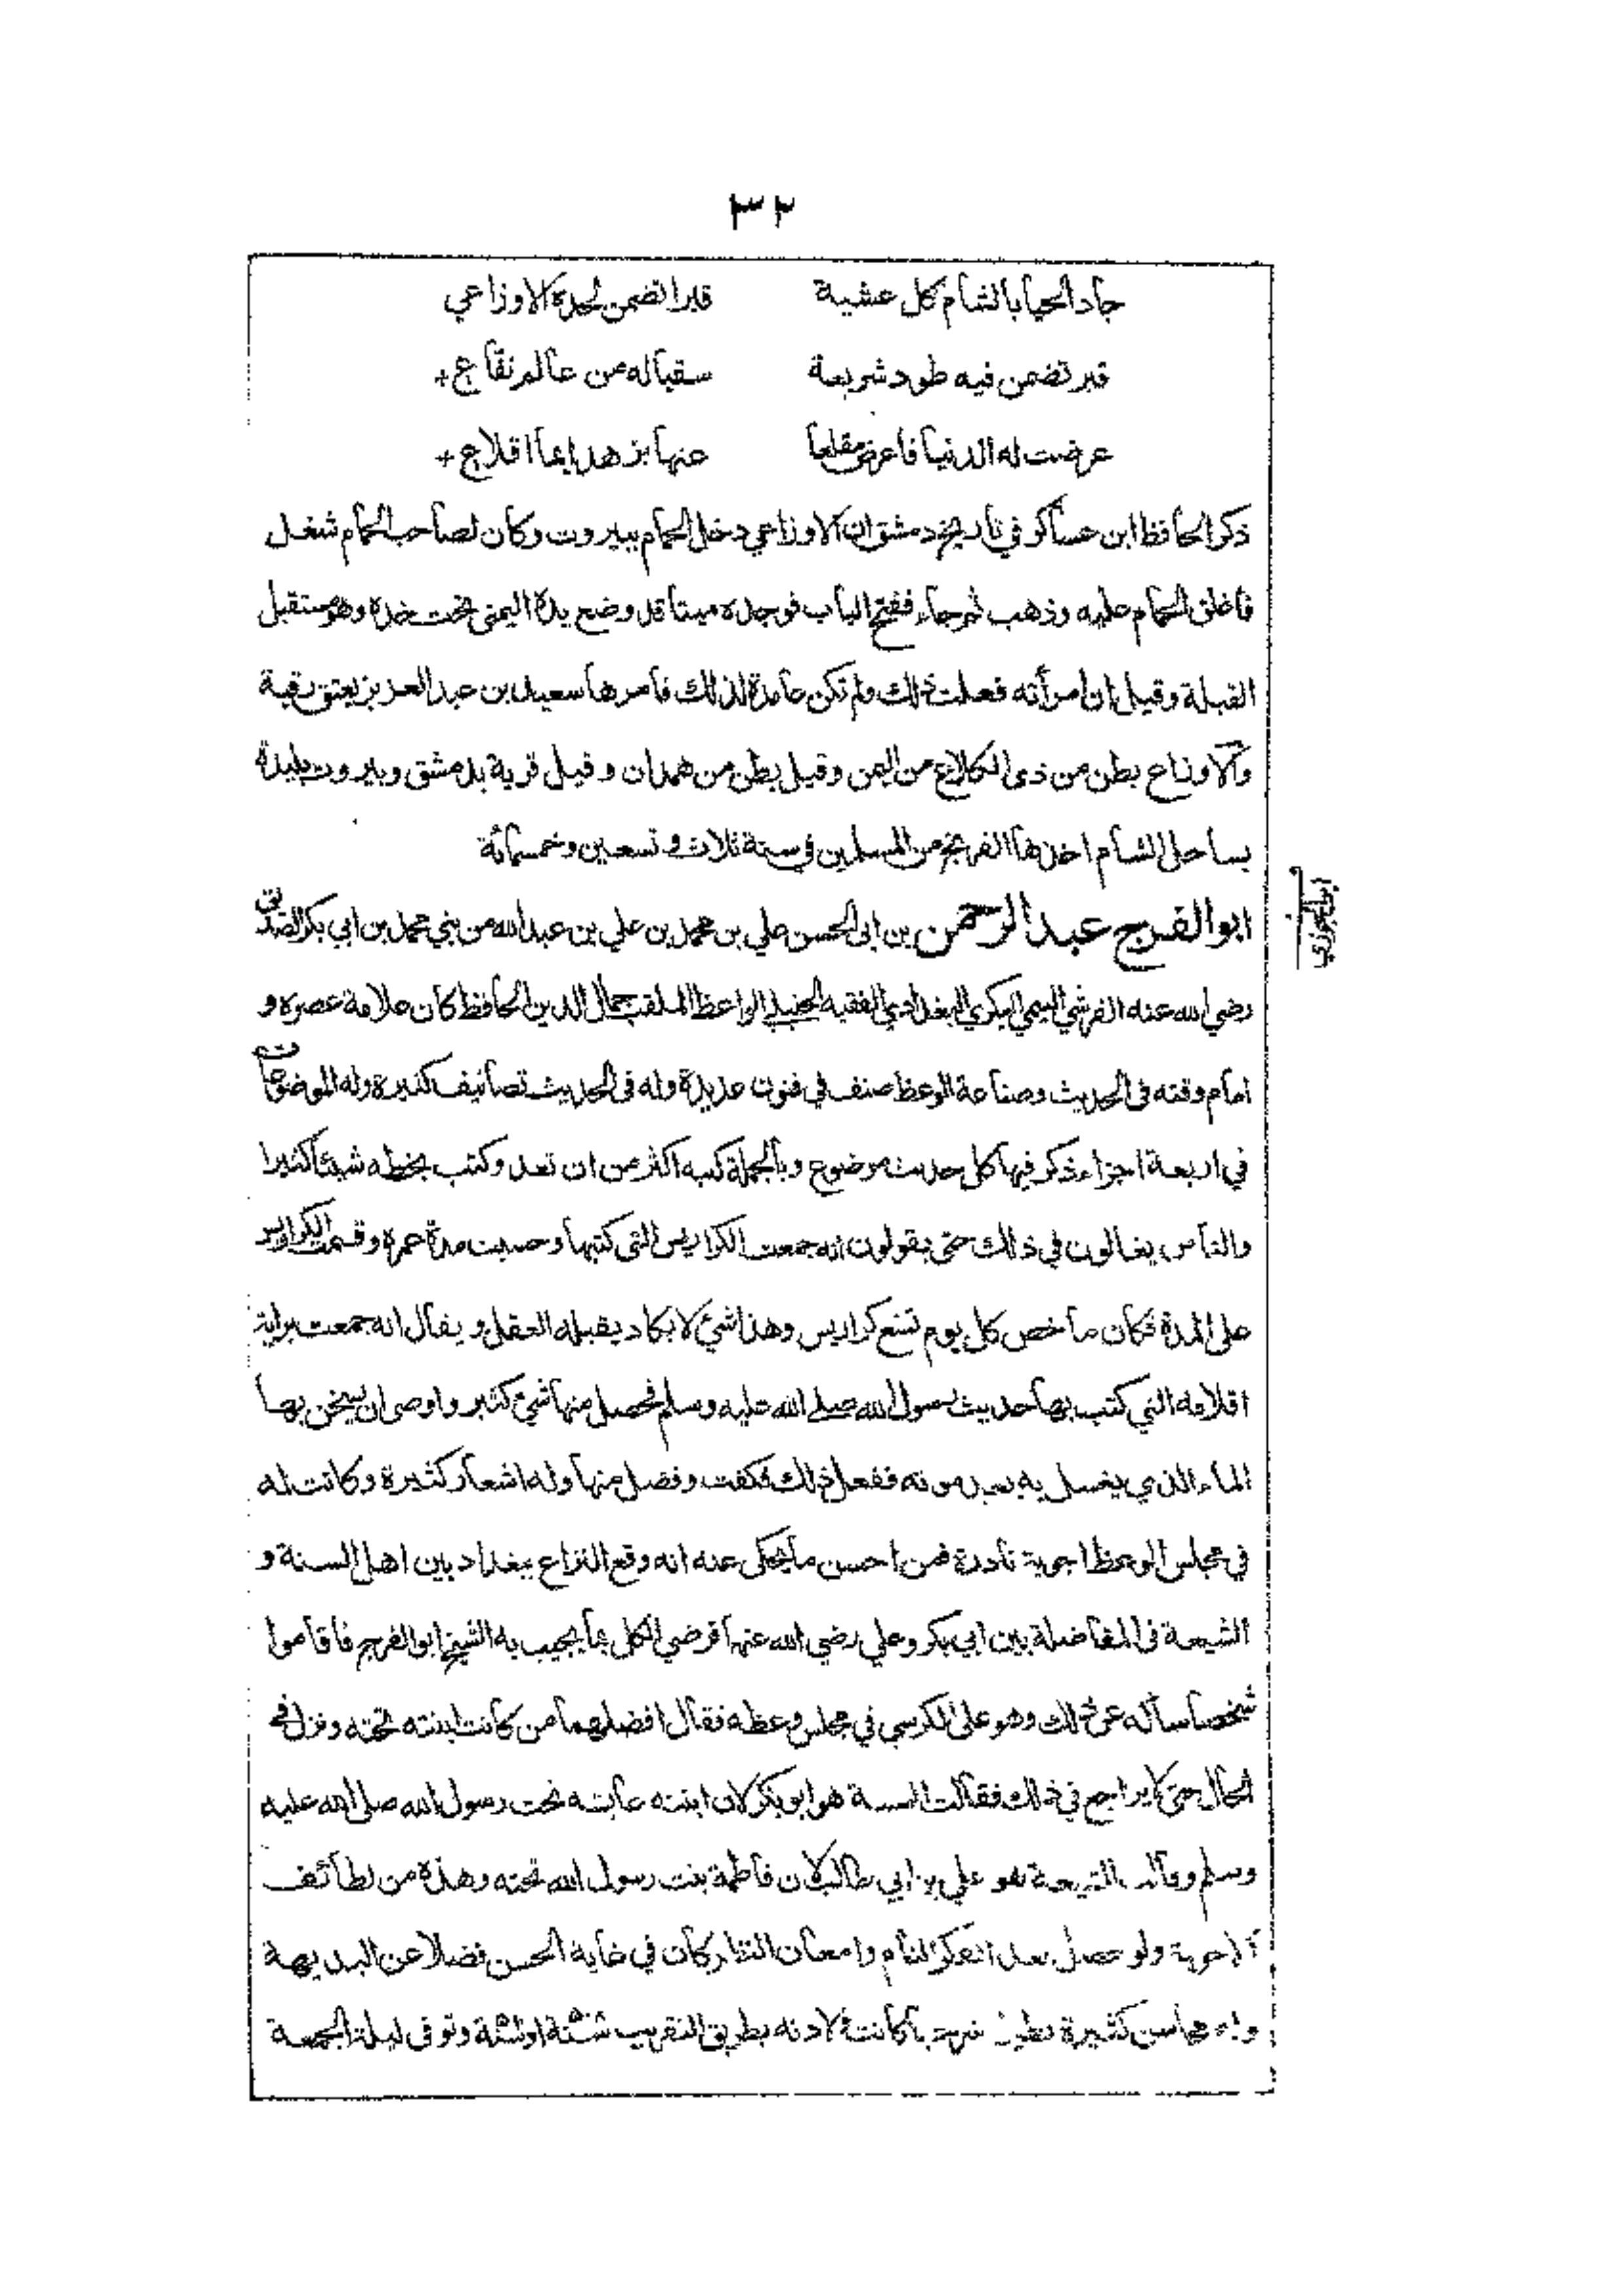 ٣٢
جاد الحيا بالشام كل عشية قبرا تضمن لحده الاوزاعي
قبر تضمن فيه طود شريعة سقيا له من عالم نفاع +
عرضت له الدنيا فاعرض مقلعا عنها بزهد ايما اقلاع +
ذكر الحافظ ابن عساكر في تاريخ دمشق ان الاوزاعي دخل الحمام ببيروت وكان لصاحب الحمام شغل
فاغلق الحمام عليه وذهب ثم جاء ففتح الباب فوجده ميتا قد وضع يده اليمنى تحت خده وهو مستقبل
القبلة وقيل ان امرأته فعلت ذلك ولم تكن عامدة لذلك فامرها سعيد بن عبد العزيز بعتق رقبة
والاوزاع بطن من ذى الكلاع من اليمن وقيل بطن من همدان وقيل قرية بدمشق وبيروت بليدة
بساحل الشام اخذها الفرنج من المسلمين في سنة ثلاث و تسعين وخمسمائة
ابن الجوزي
ابو الفرج عبد الرحمن بن ابى الحسن علي بن محمد بن علي بن عبد الله من بني محمد بن ابي بكر الصديق
رضي الله عنه القرشي التيمي البكري البغدادي الفقيه الحنبلي الواعظ الملقب جمال الدين الحافظ كان علامة عصره و
امام وقته فى الحديث وصناعة الوعظ صنف في فنون عديدة وله فى الحديث تصانيف كثيرة وله الموضوعات
في اربعة اجزاء ذكر فيها كل حديث موضوع وبالجملة كتبه اكثر من ان تعد وكتب بخطه شيئا كثيرا
والناس يغالون في ذلك حتى يقولون انه جمعت الكراريس التى كتبها وحسبت مدة عمره وقسمت الكراريس
على المدة فكان ما خص كل يوم تسع كراريس وهذا شئ لا يكاد يقبله العقل ويقال انه جمعت براية
اقلامه التي كتب بها حديث رسول الله صلى الله عليه وسلم فحصل منها شئ كثير واوصى ان يسخن بها
الماء الذي يغسل به بعد موته ففعل ذلك فكفت وفضل منها وله اشعار كثيرة وكانت له
في مجلس الوعظ اجوبة نادرة فمن احسن ما يحكى عنه انه وقع النزاع ببغداد بين اهل السنة و
الشيعة فى المفاضلة بين ابي بكر وعلي رضي الله عنهما فرضي الكل بما يجيب به الشيخ ابو الفرج فاقاموا
شخصا سأله عن ذلك وهو على الكرسي في مجلس وعظه فقال افضلهما من كانت ابنته تحته ونزل فى
الحال حتى لا يراجع في ذلك فقالت السنة هو ابو بكر لان ابنته عايشه تحت رسول الله صلى الله عليه
وسلم وقالت الشيعة هو علي بن ابي طالب لان فاطمة بنت رسول الله تحته وهذه من لطائف
الاجوبة ولو حصل بعد الفكر التام وامعان النظر كان في غاية الحسن فضلا عن البديهة
وله محاسن كثيرة يطول شرحها كانت ولادته بطريق التقريب سنة او وتوفى ليلة الجمعة